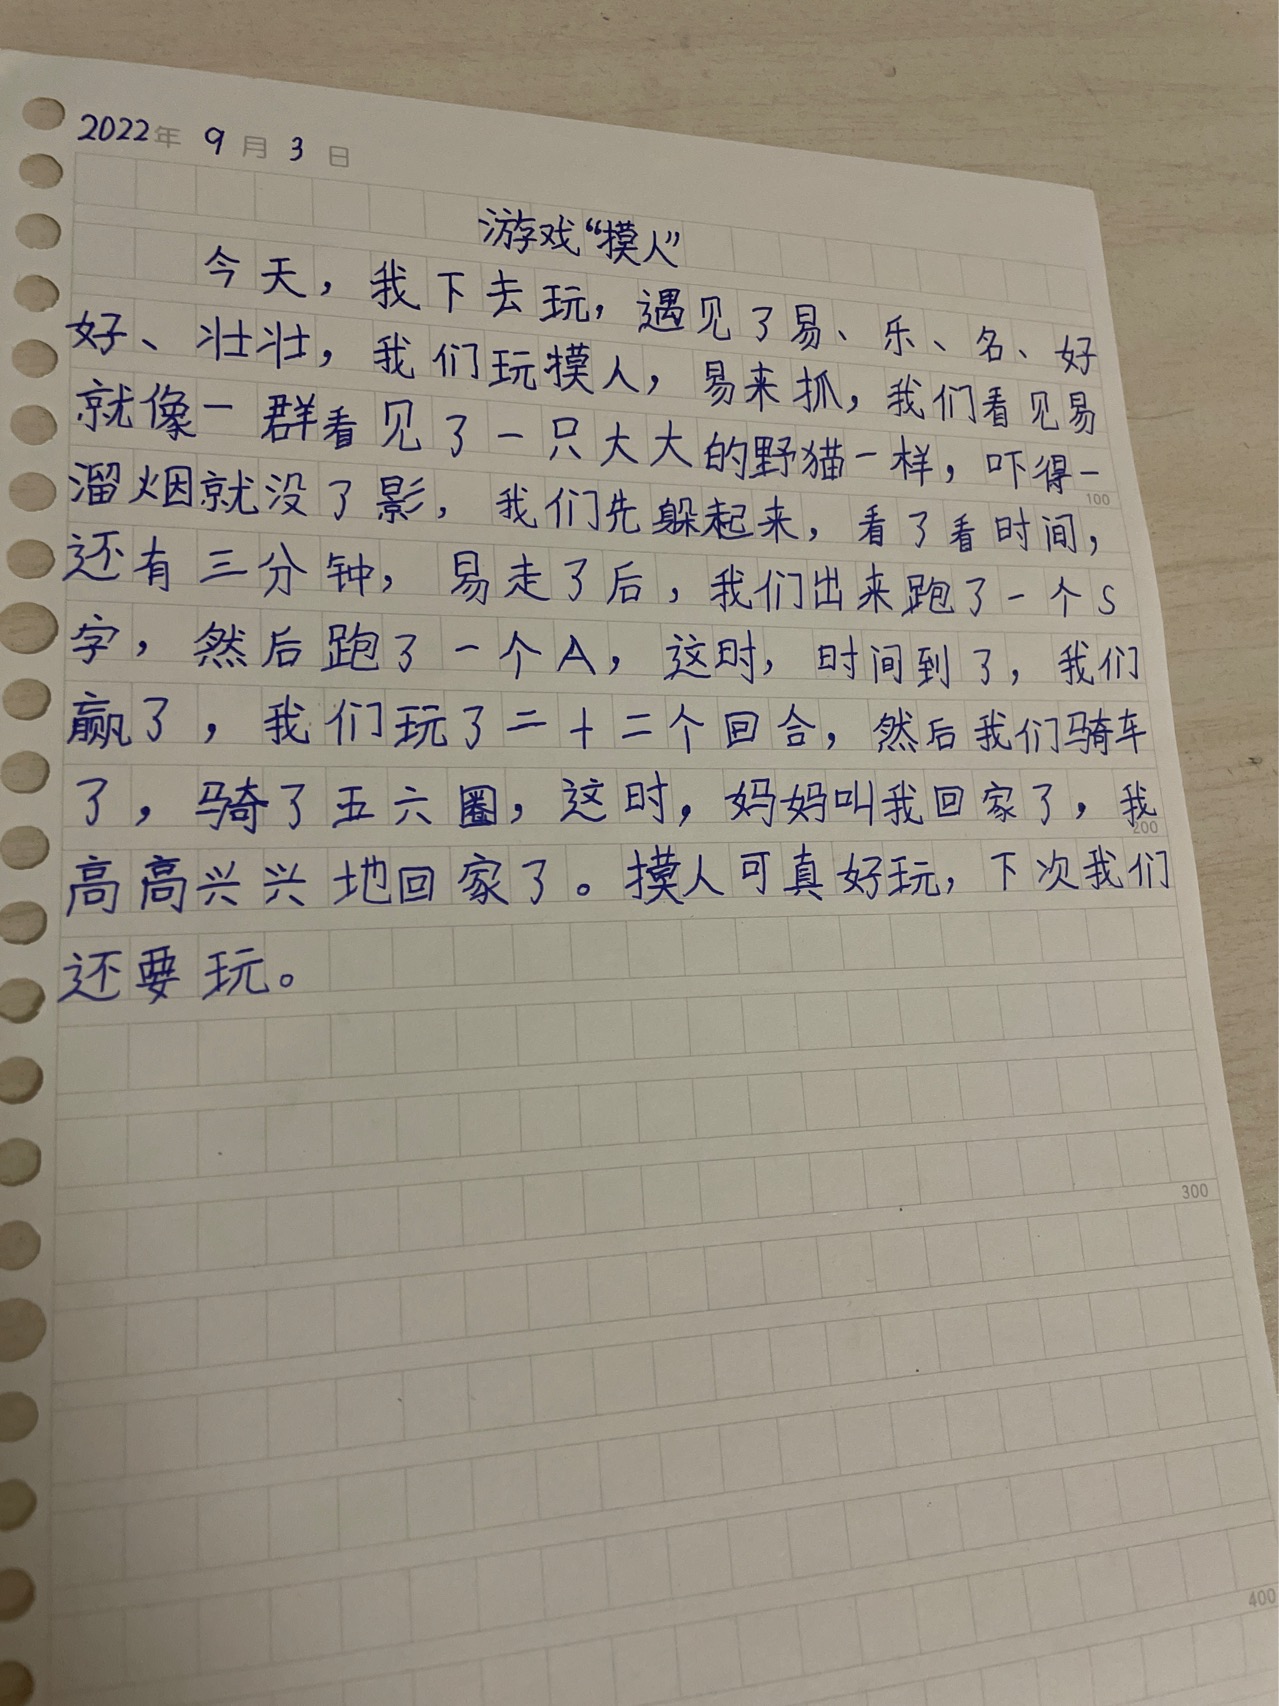 2022年 9月 3日
游戏“摸人”
今天，我下去玩，遇见了易、乐、名、好
好、壮壮，我们玩摸人，易来抓，我们看见易
就像一群看见了一只大大的野猫一样，吓得一
溜烟就没了影，我们先躲起来，看了看时间，
还有三分钟，易走了后，我们出来跑了一个S
字，然后跑了一个A，这时，时间到了，我们
赢了，我们玩了二十二个回合，然后我们骑车
了，骑了五六圈，这时，妈妈叫我回家了，我
高高兴兴地回家了。摸人可真好玩，下次我们
还要玩。
100
200
300
400